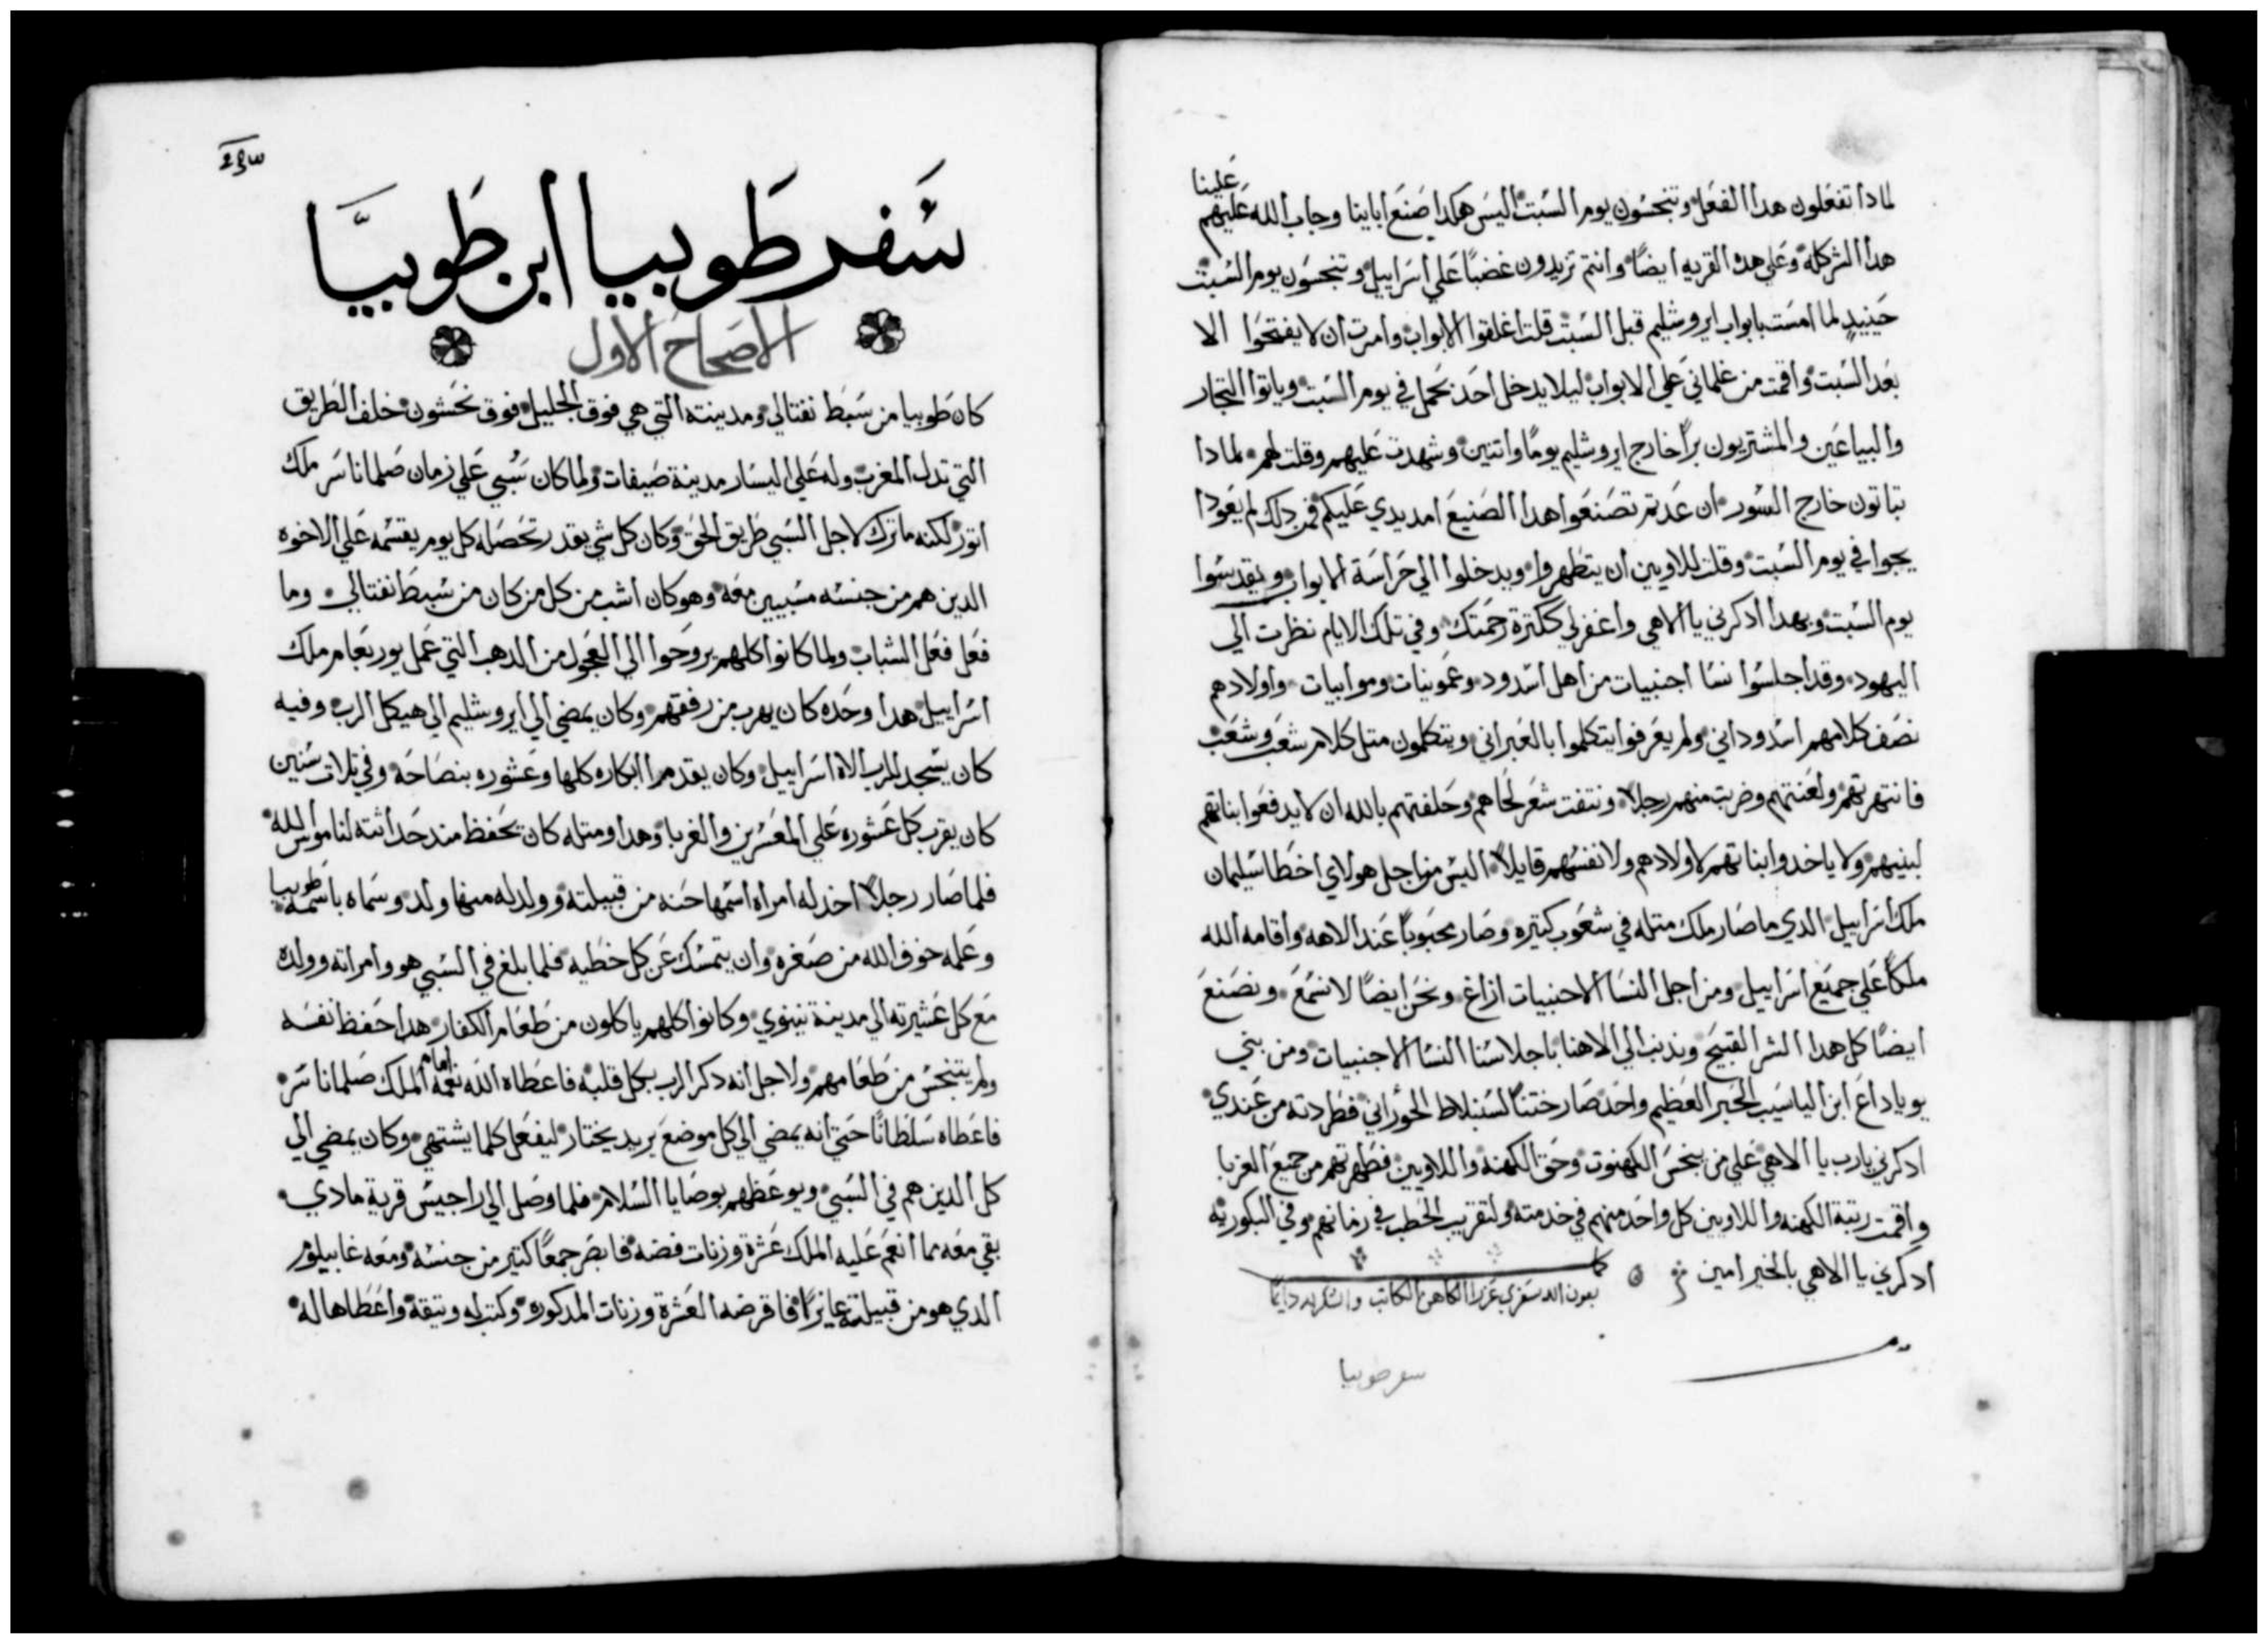 علينا
لمادا تفعلون هدا الفعل وتنجسون يوم السبت اليس هكدا صنع اباينا وجاب الله عليهم
هدا الشر كله وعلي هده القريه ايضًا وانتم تزيدون غضبًا علي اسراييل وتنجسون يوم السبت
حينيدٍ لما امست بابواب ايروشليم قبل السبت قلت اغلقوا الابواب وامرت ان لا يفتحوا الا
بعد السبت واقمت من غلماني علي الابواب ليلا يدخل احد بحمل في يوم السبت وباتوا التجار
والبياعين والمشتريون برًا خارج ايروشليم يومًا واتنين وشهدت عليهم وقلت لهم لمادا
تباتون خارج السور ان عدتم تصنعوا هدا الصنيع امد يدي عليكم فمن دلك لم يعودا
يجوا في يوم السبت وقلت للاويين ان يتطهروا ويدخلوا الي حراسة الابواب ويقدسوا
يوم السبت وبهدا ادكرني يا الاهي واغفر لي ككترة رحمتك وفي تلك الايام نظرت الي
اليهود وقد اجلسوا نسا اجنبيات من اهل اسدود وعمونيات وموابيات واولادهم
نصف كلامهم اسدوداني ولم يعرفوا يتكلموا بالعبراني ويتكلمون متل كلام شعب وشعب
فانتهرتهم ولعنتهم وضربت منهم رجلًا ونتفت شعر لحاهم وحلفتهم بالله ان لا يدفعوا بناتهم
لبنيهم ولا ياخدوا بناتهم لاولادهم ولا نفسهم قايلًا اليس من اجل هولاي اخطا سليمان
ملك اسراييل الدي ما صار ملك متله في شعوب كتيره وصار محبوبًا عند الاهه واقامه الله
ملكًا علي جميع اسراييل ومن اجل النسا الاجنبيات ازاغ ونحن ايضًا لا نسمع ونصنع
ايضًا كل هدا الشر القبيح وندنب الي الاهنا باجلاسنا النسا الاجنبيات ومن بني
يوياداع ابن الياسيب الحبر العظيم واحد صار ختنًا لسنبلاط الحوراني فطردته من عندي
ادكرني يارب يا الاهي علي من ينجس الكهنوت وحق الكهنه واللاويين فطهرتهم من جميع الغربا
واقمت رتبة الكهنه واللاويين كل واحد منهم في خدمته ولتقريب الحطب في زمانهم وفي البكوريه
ادكرني يا الاهي بالخير امين
كمل بعون الله سفري عزرا الكاهن الكاتب والشكر لله دايمًا
سفر طوبيا
سفر طوبيا ابن طوبيا
الاصحاح الاول
كان طوبيا من سبط نفتالي ومدينته التي هي فوق الجليل فوق نحشون خلف الطريق
التي تدل المغرب وله علي اليسار مدينة صيفات ولما كان سُبي علي زمان صلماناسر ملك
اتور لكنه ما ترك لاجل السبي طريق الحق وكان كل شي يقدر تحصله كل يوم يقسمه علي الاخوه
الدين هم من جنسه مسبيين معه وهو كان اشب من كل من كان من سبط نفتالي وما
فعل فعل الشباب ولما كانوا كلهم يروحوا الي العجول من الدهب التي عمل يوربعام ملك
اسراييل هدا وحده كان يهرب من رفقتهم وكان يمضي الي ايروشليم الي هيكل الرب وفيه
كان يسجد للرب الاه اسراييل وكان يقدم ابكاره كلها وعشوره بنصاحة وفي تلات سنين
كان يقرب كل عشوره علي المعسرين والغربا وهدا ومتله كان يحفظ مند حداثته لناموس الله
فلما صار رجلًا اخد له امراه اسمها حنه من قبيلته وولد له منها ولد وسماه باسمه طوبيا
وعلمه خوف الله من صغره وان يتمسك عن كل خطيه فلما بلغ في السبي هو وامراته وولده
مع كل عشيرته الي مدينة نينوي وكانوا كلهم ياكلون من طعام الكفار هدا حفظ نفسه
ولم يتنجس من طعامهم ولاجل انه دكر الرب بكل قلبه فاعطاه الله نعمه امام الملك صلماناسر
فاعطاه سلطانًا حتي انه يمضي الي كل موضع يريد يختار ليفعل كلما يشتهي وكان يمضي الي
كل الدين هم في السبي ويوعظهم بوصايا السلام فلما وصل الي راجيس قرية مادي
بقي معه مما انعم عليه الملك عشرة وزنات فضه فابصر جمعًا كتير من جنسه ومعه غابيلوس
الدي هو من قبيلته عايزًا فاقرضه العشرة وزنات المدكوره وكتب له وتيقة واعطاها له